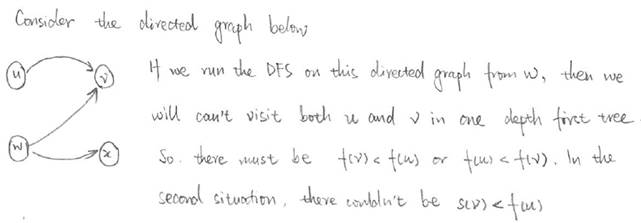 Consider the directed graph below
u
v
w
x
If we run the DFS on this directed graph from w, then we
will can't visit both u and v in one depth first tree.
So. there must be f(v) < f(u) or f(u) < f(v). In the
second situation, there couldn't be s(v) < f(u)